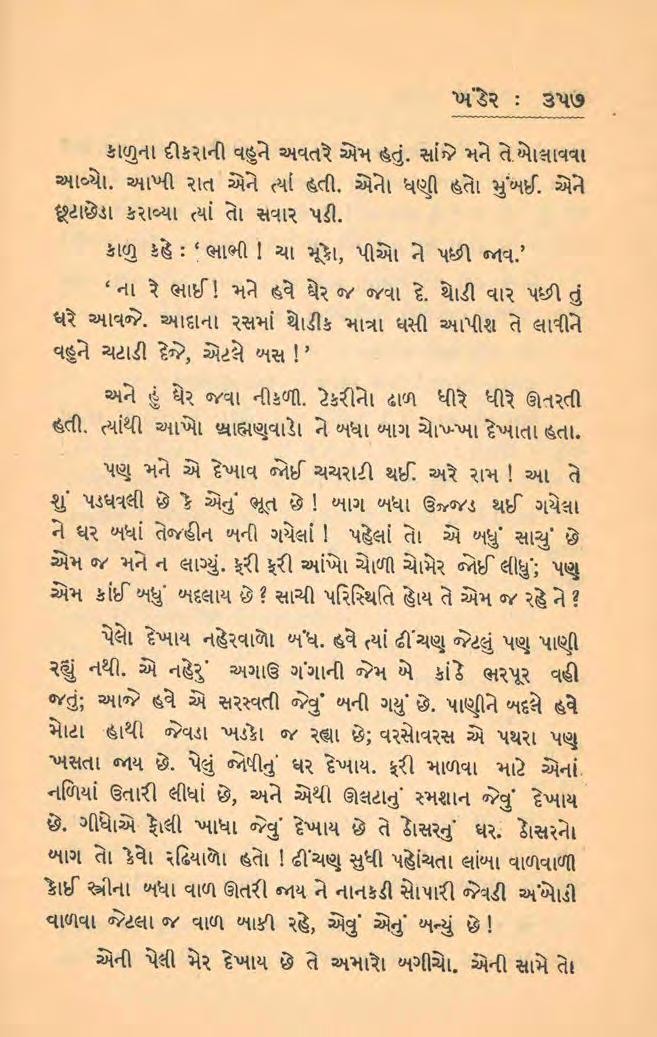 ખંડેર : ૩૫૭
કાળુના દીકરાની વહુને અવતરે એમ હતું. સાંજે મને તે બોલાવવા
આવ્યો. આખી રાત એને ત્યાં હતી. એનો ધણી હતો મુંબઈ. એને
છૂટાછેડા કરાવ્યા ત્યાં તો સવાર પડી.
કાળુ કહે : ‘ ભાભી ! ચા મૂકો, પીઓ ને પછી જાવ.’
‘ ના રે ભાઈ! મને હવે ઘેર જ જવા દે. થોડી વાર પછી તું
ઘરે આવજે. આદાના રસમાં થોડીક માત્રા ઘસી આપીશ તે લાવીને
વહુને ચટાડી દેજે, એટલે બસ ! ’
અને હું ઘેર જવા નીકળી. ટેકરીનો ઢાળ ધીરે ધીરે ઊતરતી
હતી. ત્યાંથી આખો બ્રાહ્મણવાડો ને બધા બાગ ચોખ્ખા દેખાતા હતા.
પણ મને એ દેખાવ જોઈ ચચરાટી થઈ. અરે રામ ! આ તે
શું પડધવલી છે કે એનું ભૂત છે ! બાગ બધા ઉજ્જડ થઈ ગયેલા
ને ઘર બધાં તેજહીન બની ગયેલાં ! પહેલાં તો એ બધું સાચું છે
એમ જ મને ન લાગ્યું. ફરી ફરી આંખો ચોળી ચોમેર જોઈ લીધું; પણ
એમ કાંઈ બધું બદલાય છે? સાચી પરિસ્થિતિ હોય તે એમ જ રહે ને ?
પેલો દેખાય નહેરવાળો બંધ. હવે ત્યાં ઢીંચણ જેટલું પણ પાણી
રહ્યું નથી. એ નહેરું અગાઉ ગંગાની જેમ બે કાંઠે ભરપૂર વહી
જતું; આજે હવે એ સરસ્વતી જેવું બની ગયું છે. પાણીને બદલે હવે
મોટા હાથી જેવડા ખડકો જ રહ્યા છે; વરસોવરસ એ પથરા પણ
ખસતા જાય છે. પેલું જોષીનું ઘર દેખાય. ફરી માળવા માટે એનાં
નળિયાં ઉતારી લીધાં છે, અને એથી ઊલટાનું સ્મશાન જેવું દેખાય
છે. ગીધોએ ફોલી ખાધા જેવું દેખાય છે તે ઠોસરનું ઘર. ઠોસરનો
બાગ તો કેવો રઢિયાળો હતો ! ઢીંચણ સુધી પહોંચતા લાંબા વાળવાળી
કોઈ સ્ત્રીના બધા વાળ ઊતરી જાય ને નાનકડી સોપારી જેવડી અંબોડી
વાળવા જેટલા જ વાળ બાકી રહે, એવું એનું બન્યું છે !
એની પેલી મેર દેખાય છે તે અમારો બગીચો. એની સામે તો